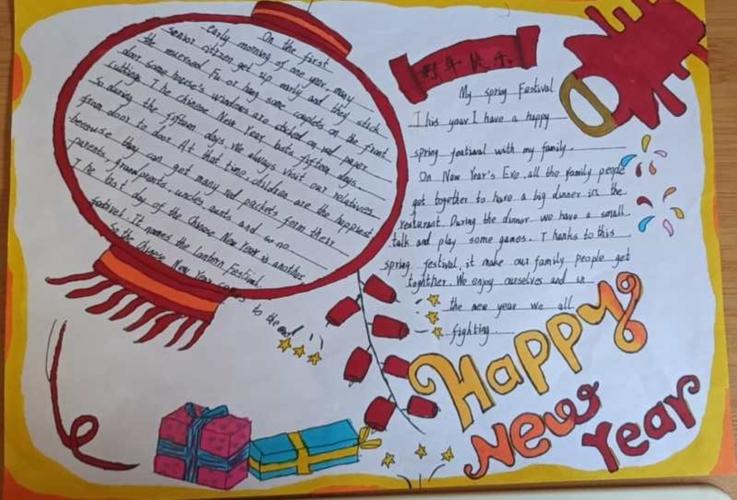 On the first
early morning of one year, many
senior citizen get up early and they stick
the reversed Fu or hang some couplets on the front
door. some house's windows are sticked on red paper
cutting. The chinese New Year lasts fifteen days.
So during the fifteen days. We always visit our relatives
from door to door. At that time, children are the happiest
because they can get many red packets form their
parents, grandparents, uncles, aunts and so on.
The last day of the Chinese New Year is another
festival. It names the Lantern Festival.
So the Chinese New Year comes to the end.
新年快乐
My spring Festival
This year I have a happy
spring festival with my family.
On New Year's Eve, all the family people
get together to have a big dinner in the
resturant. During the dinner. we have a small
talk and play some games. Thanks to this
spring festival, it make our family people get
together. We enjoy ourselves and in
the new year we all
fighting.
Happy
New
Year